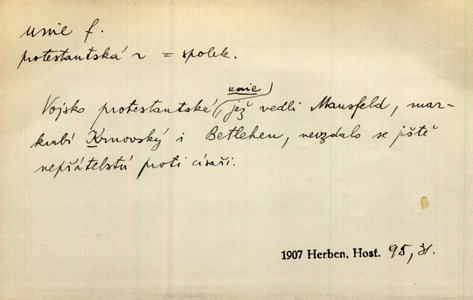 unie f.
protestantská ~ = spolek.
unie
Vojsko protestantské, jež vedli Mansfeld, mar-
krabí Krnovský i Betlehen, nevzdalo se ještě
nepřátelství proti císaři.
1907 Herben, Host. 95,